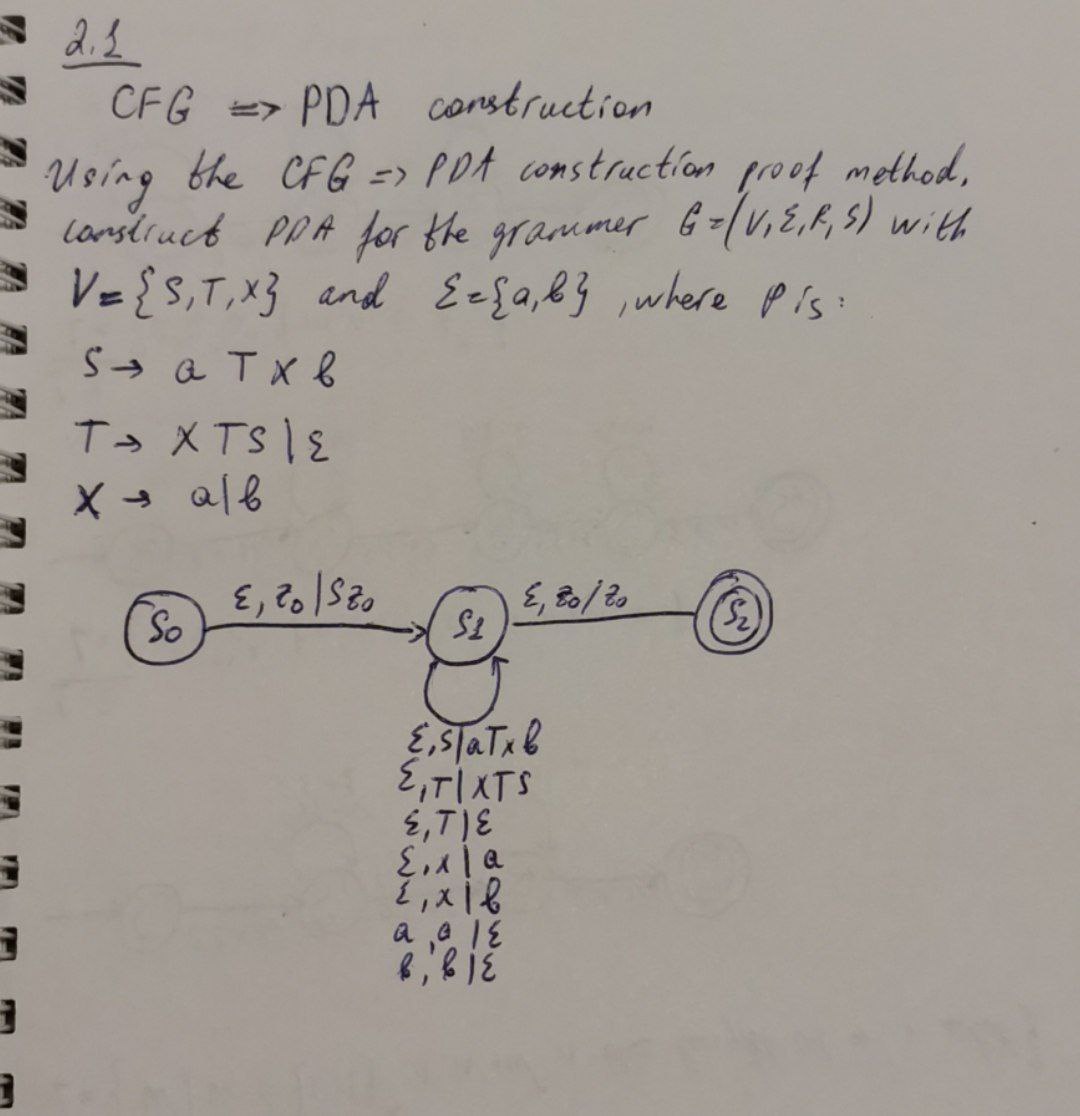 2.1
CFG => PDA construction
Using the CFG => PDA construction proof method,
construct PDA for the grammer G=(V,Σ,R,S) with
V={S,T,X} and Σ={a,b}, where P is:
S→ a T X b
T→ X T S | ε
X → a|b
S0 ε, z0 | Sz0 S1 ε, z0/z0 S2
ε,S|aTxb
ε,T|XTS
ε,T|ε
ε,x|a
ε,x|b
a,a|ε
b,b|ε